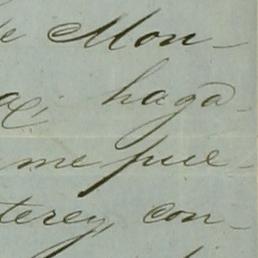 e Mon-
haga-
me pue-
terey, con-